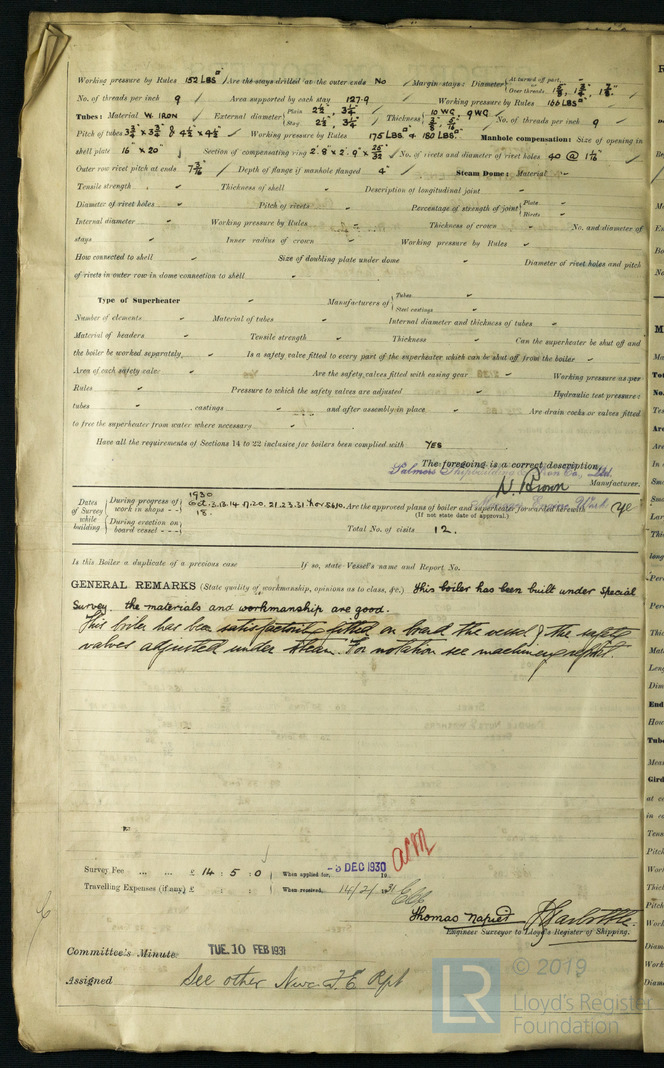 Working pressure by Rules 152 LBS □" Are the stays drilled at the outer ends No Margin stays: Diameter { At turned off part, Over threads 1 5/8", 1 3/4", 1 7/8"
No. of threads per inch 9 Area supported by each stay 127.9 Working pressure by Rules 166 LBS □"
Tubes: Material W. IRON External diameter { Plain 2½" 3¼" Stay 2½" 3¼" Thickness { 10 WG. 9 WG. No. of threads per inch 9
Pitch of tubes 3¾" x 3¾" & 4½" x 4½" Working pressure by Rules 175 LBS. & 180 LBS. □" Manhole compensation: Size of opening in
shell plate 16" x 20" Section of compensating ring No. of rivets and diameter of rivet holes 40 @
Outer row rivet pitch at ends Depth of flange if manhole flanged 4" Steam Dome: Material
Tensile strength Thickness of shell Description of longitudinal joint
Diameter of rivet holes Pitch of rivets Percentage of strength of joint { Plate Rivets
Internal diameter Working pressure by Rules Thickness of crown No. and diameter of
stays Inner radius of crown Working pressure by Rules
How connected to shell Size of doubling plate under dome Diameter of rivet holes and pitch
of rivets in outer row in dome connection to shell
Type of Superheater Manufacturers of { Tubes Steel castings
Number of elements Material of tubes Internal diameter and thickness of tubes
Material of headers Tensile strength Thickness Can the superheater be shut off and
the boiler be worked separately, Is a safety valve fitted to every part of the superheater which can be shut off from the boiler
Area of each safety valve Are the safety valves fitted with easing gear Working pressure as per
Rules Pressure to which the safety valves are adjusted Hydraulic test pressure:
tubes , castings and after assembly in place Are drain cocks or valves fitted
to free the superheater from water where necessary
Have all the requirements of Sections 14 to 22 inclusive for boilers been complied with YES
The foregoing is a correct description,
Palmers Shipbuilding & Iron Co., Ltd.
N. Brown Manufacturer.
Dates of Survey while building { During progress of work in shops - - 1930 Oct. 3.13.14.17.20.21.23.31 Nov 5.6.10. Are the approved plans of boiler and superheater forwarded herewith Yes
(If not state date of approval.)
During erection on board vessel - - - 18. Total No. of visits 12.
Is this Boiler a duplicate of a previous case If so, state Vessel's name and Report No.
GENERAL REMARKS (State quality of workmanship, opinions as to class, &c.) This boiler has been built under Special
Survey. the materials and workmanship are good.
This boiler has been satisfactorily fitted on board the vessel & the safety
valves adjusted under steam. For notation see machinery report.
Survey Fee ... ... £ 14 : 5 : 0 When applied for, -3 DEC 1930 19
Travelling Expenses (if any) £ : : When received, 14/2/1931
Thomas Napier
Engineer Surveyor to Lloyd's Register of Shipping.
Committee's Minute TUE. 10 FEB 1931
Assigned See other Nwc. F.E. Rpt
© 2019
LR Lloyd's Register
Foundation